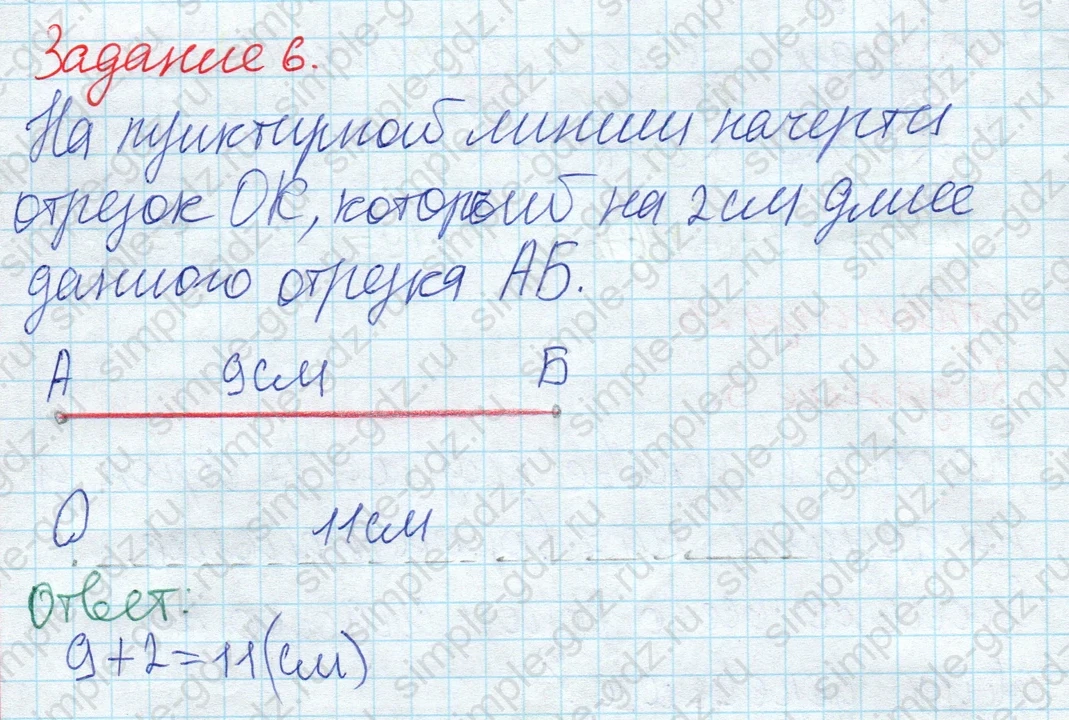 Задание 6.
На пунктирной линии начерти
отрезок ОК, который на 2 см длиее
данного отрезка АБ.
А 9 см Б
О 11 см
Ответ:
9 + 2 = 11 (см)
simple-gdz.ru